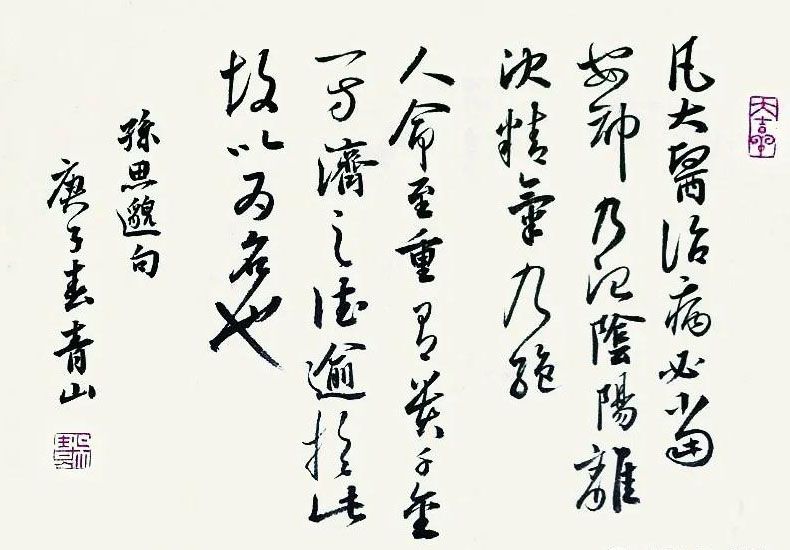 凡大醫治病必當
安神乃陰陽離
決精氣乃絕
人命至重有貴千金
一方濟之德逾於此
故以為名也
孫思邈句
庚子春青山